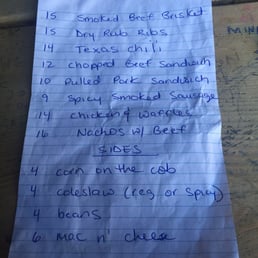 15 Smoked Beef Brisket
15 Dry Rub Ribs
14 Texas Chili
12 Chopped Beef Sandwich
10 Pulled Pork Sandwich
9 Spicy Smoked Sausage
14 chicken & Waffles
16 Nachos w/ Beef
SIDES
4 corn on the cob
4 coleslaw (reg or Spicy)
4 beans
6 mac n' cheese